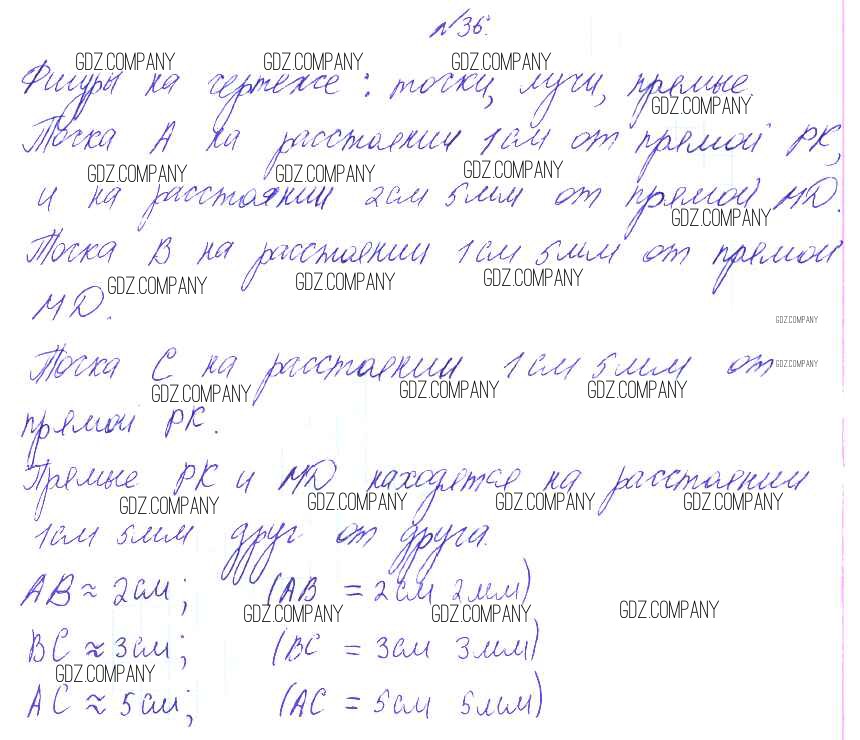 №36.
GDZ.COMPANY GDZ.COMPANY GDZ.COMPANY
Фигуры на чертеже: точки, лучи, прямые.
GDZ.COMPANY
Точка А на расстоянии 1см от прямой РК,
GDZ.COMPANY GDZ.COMPANY GDZ.COMPANY
и на расстоянии 2см 5мм от прямой MD.
GDZ.COMPANY
Точка В на расстоянии 1см 5мм от прямой
GDZ.COMPANY GDZ.COMPANY GDZ.COMPANY
MD.
GDZ.COMPANY
Точка С на расстоянии 1см 5мм от
GDZ.COMPANY
GDZ.COMPANY GDZ.COMPANY GDZ.COMPANY
прямой РК.
Прямые РК и MD находятся на расстоянии
GDZ.COMPANY GDZ.COMPANY GDZ.COMPANY GDZ.COMPANY
1см 5мм друг от друга.
АВ ≈ 2см; (АВ = 2см 2мм)
GDZ.COMPANY GDZ.COMPANY GDZ.COMPANY
ВС ≈ 3см; (ВС = 3см 3мм)
GDZ.COMPANY
АС ≈ 5см; (АС = 5см 5мм)